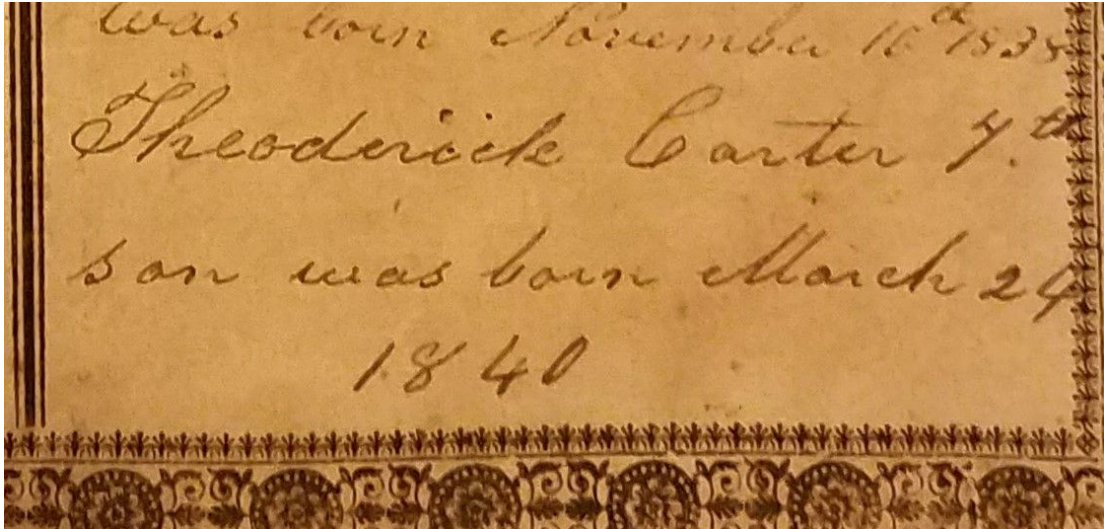 was born November 16th 1838
Theoderick Carter 7.th
son was born March 24
1840